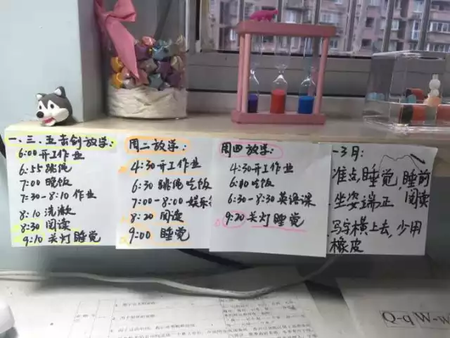 一、三、五击剑放学:
6:00 开工作业
6:55 跳绳
7:00 晚饭
7:30-8:10 作业
8:10 洗漱
8:30 阅读
9:10 关灯睡觉
周二放学:
4:30 开工作业
6:30 跳绳吃饭
7:00-8:00 娱乐
8:20 阅读
9:00 睡觉
周四放学:
4:30 开工作业
6:00 吃饭
6:30-8:30 英语课
9:20 关灯睡觉
一3月:
准点睡觉,睡前
阅读
坐姿端正
写与横上去,少用
橡皮
Q-q W-w